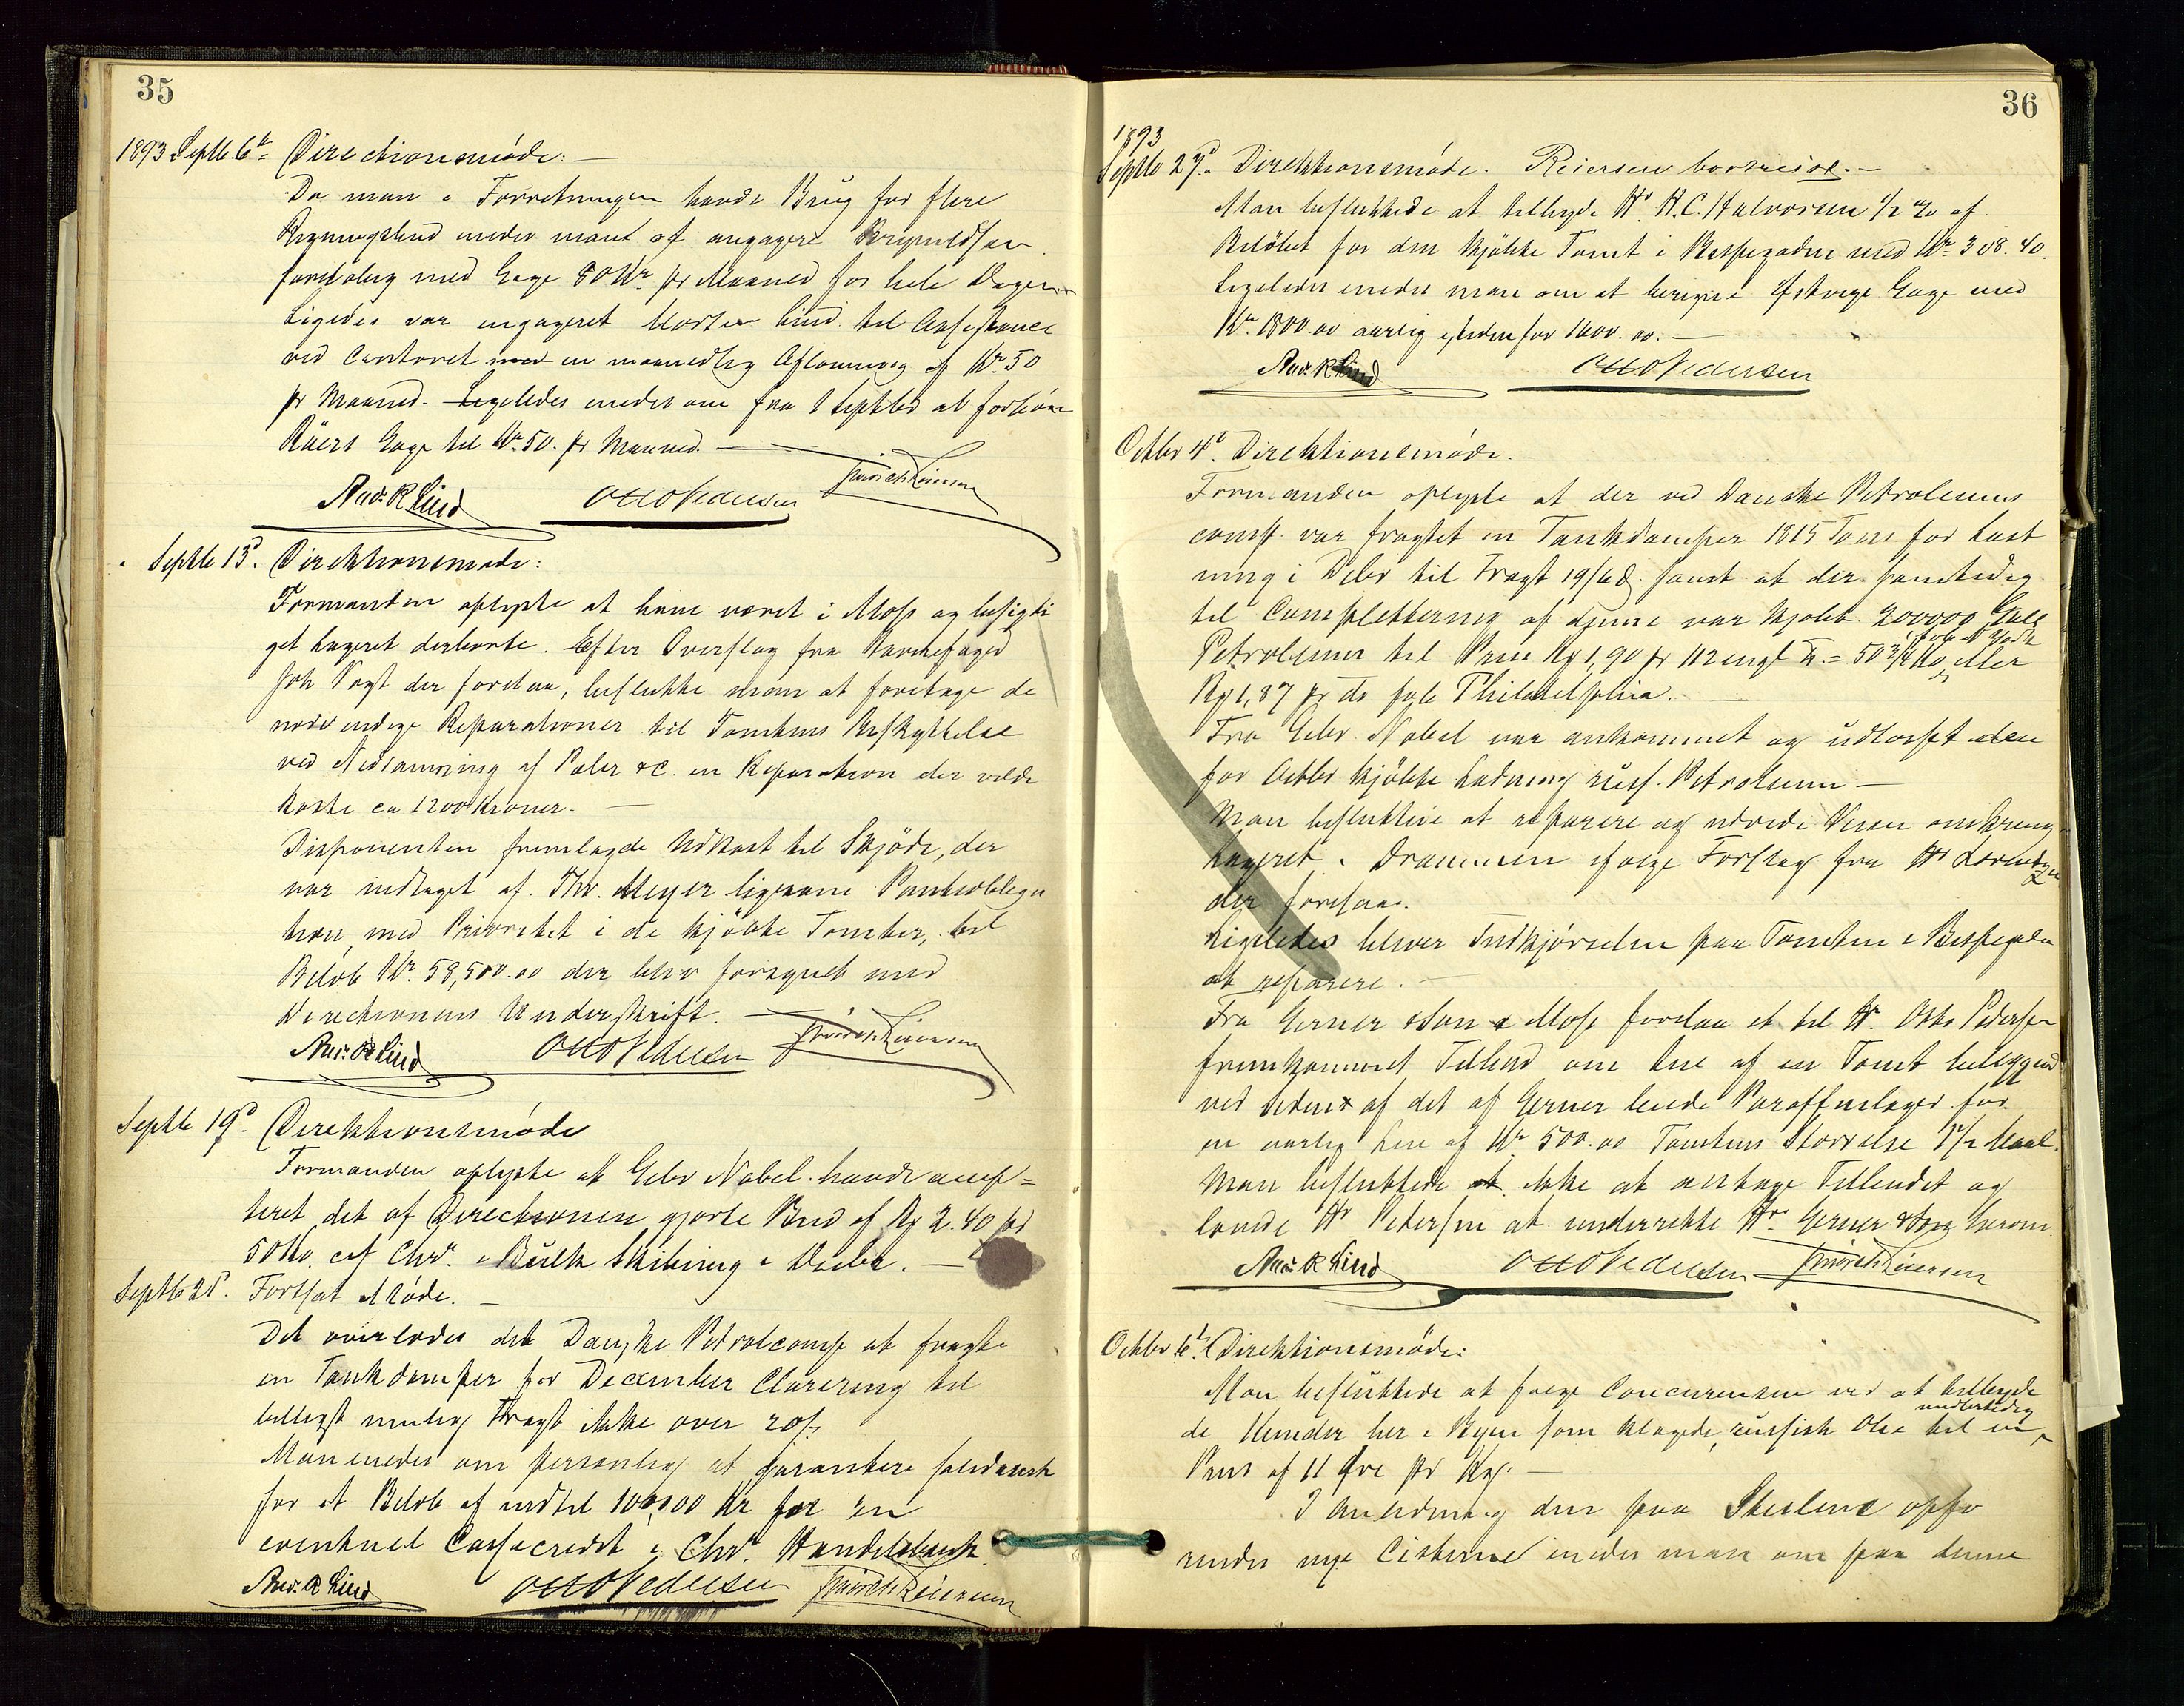 35
1893 Septb. 6te Directionsmöde: —
Da man i Forretningen havde Brug for flere
enedes man at engagere
foreløbig med Gage 80 Kr. pr Maaned for hele Dagen
Ligedes var engageret Morten Lind til Assistance
ved Contoret med en maanedlig Aflønning af Kr. 50
pr Maaned. Ligeledes enedes om fra 1 Septbr at forhöie
Gage til Kr. 50. pr Maaned. —
And. R Lind Otto Pedersen Reiersen
Septb 13d. Direktionsmøde:
Formanden oplyste at have været i Moss og besigti
get Lageret dersteds. Efter Overslag fra Havnefoged
Joh Vogt der forelaa, besluttede man at foretage de
nødvendige Reparationer til Tomtens Beskyttelse
ved Nedramning af Pæler &c. en Reparation der vilde
koste ca 1200 Kroner. —
Disponenten fremlagde Udkast til Skjöde, der
var indtaget af Thv. Meyer ligesom Panteobliga
tion med Prioritet i de kjöbte Tomter, til
Beløb Kr. 58,500.00 der blev forsynet med
Direktionens Underskrift. —
And. R Lind Otto Pedersen Reiersen
Septb 19d. Direktionsmøde
Formanden oplyste at Gebr Nobel havde accep=
teret det af Directionen gjorte Bud af Rg 2.40 pr
50 Ko. cif Chra. i Bulk Skibning i Decbr. —
Septb 21d. Fortsat Møde. —
Det overlodes det Danske Petrolcomp at fragte
en Tankdamper for December Clarering til
billigst mulig Fragt ikke over 20/-
Man enedes om personlig at garantere solidarisk
for et Beløb af indtil 100,000 Kr for en
eventuel Cassecredit i Chra. Handelsbank.
And. R Lind Otto Pedersen Reiersen
36
1893
Septb 27d. Direktionsmöde. Reiersen bortreist. —
Man besluttede at tilbyde Hr H.C. Halvorsen 1/2 % af
Belöbet for den kjöbte Tomt i Bispegaden med Kr. 308.40.
Ligeledes enedes man om at beregne Gage med
Kr. 1800.00 aarlig istedenfor 1600.00. —
And. R Lind Otto Pedersen
Octbr 4d. Direktionsmöde.
Formanden oplyste at der ved Danske Petroleums
comp. var fragtet en Tankdamper 1815 Tons for Last
ning i Debr til Fragt 19/6d. samt at der samtidig
til Complettering af denne var kjøbt 200000 Gall
Petroleum til Pris Rg 1,90 pr 112 engl ℔ = 50 3/4 Ko, fob N York eller
Rg 1,87 pr do fob Philadelphia. —
Fra Gebr. Nobel var ankommet og udlosset den
for Octbr kjöbte Ladning russ. Petroleum —
Man besluttede at reparere og udvide Veien omkring
Lageret i Drammen ifølge Forslag fra Hr Lorentzen
der forelaa.
Ligeledes bliver Indkjørselen paa Tomten i Bispegaden
at reparere. —
Fra Gerner & Søn i Moss forelaa et til Hr. Otto Pedersen
fremkommet Tilbud om Leie af en Tomt beliggende
ved Siden af det af Gerner leiede Paraffinlager for
en aarlig Leie af Kr 500.00 Tomtens Størrelse 1 1/2 Maal.
Man besluttede at ikke at antage Tilbudet og
lovede Hr Pedersen at underrette Hr. Gerner & Søn herom
And. R Lind Otto Pedersen Reiersen
Octbr 6t. Direktionsmöde:
Man besluttede at følge Concurensen ved at tilbyde
de Kunder her i Byen som klagede, russisk Olie til en midlertidig
Pris af 11 Øre pr Kg. —
I Anledning den paa Steilene opfø
rendes nye Cisterne enedes man om paa denne